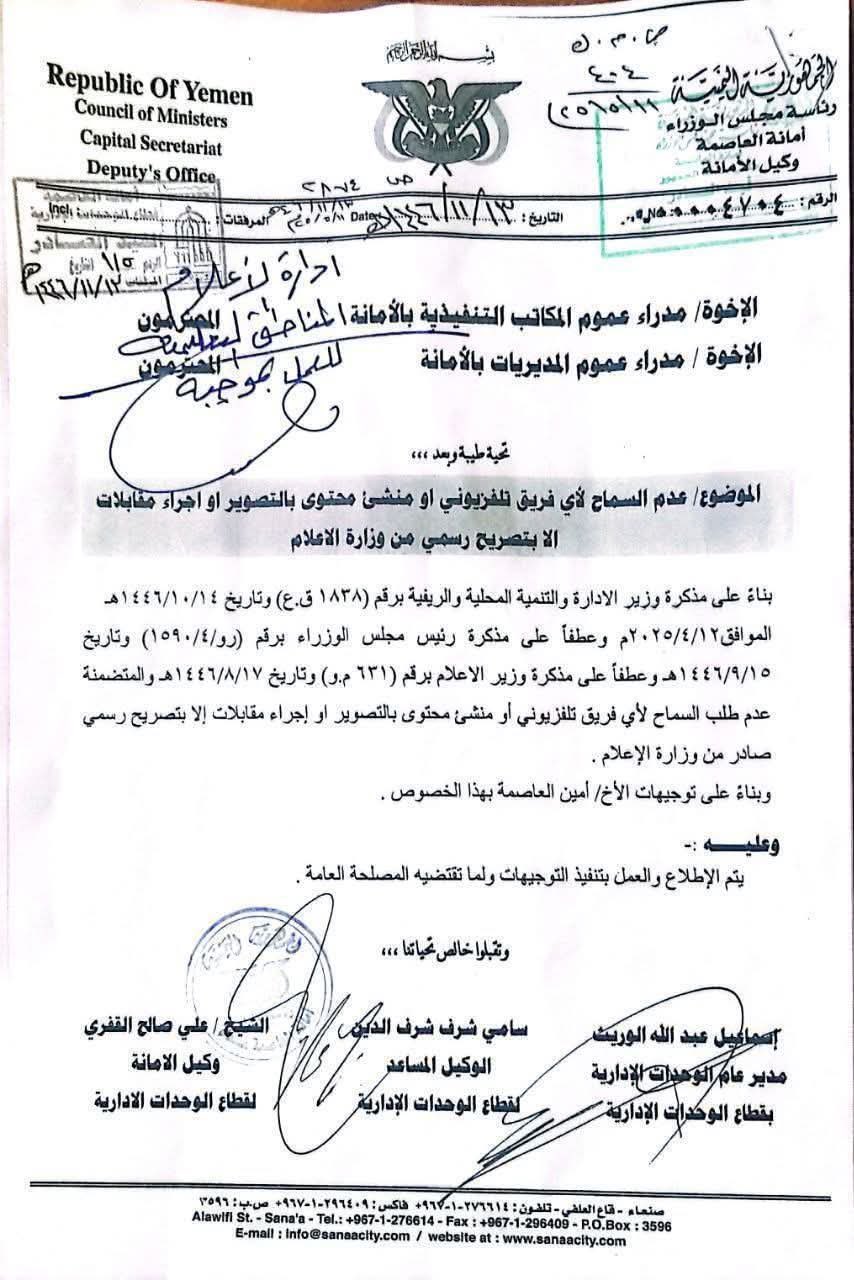 بسم الله الرحمن الرحيم
Republic Of Yemen
Council of Ministers
Capital Secretariat
Deputy's Office
الجمهورية اليمنية
رئاسة مجلس الوزراء
أمانة العاصمة
وكيل الأمانة
الرقم : ٤٧٠٤
التاريخ : ١٤٤٦/١١/١٣ Date
المرفقات : Incl
١٤٤٦/١١/١٣هـ
ادارة الإعلام
المناطق التعليمية
للعمل بموجبه
الإخوة/ مدراء عموم المكاتب التنفيذية بالأمانة المحترمون
الإخوة / مدراء عموم المديريات بالأمانة المحترمون
تحية طيبة وبعد ،،،
الموضوع/ عدم السماح لأي فريق تلفزيوني او منشئ محتوى بالتصوير او اجراء مقابلات
الا بتصريح رسمي من وزارة الاعلام
بناءً على مذكرة وزير الادارة والتنمية المحلية والريفية برقم (١٨٣٨ ق.ع) وتاريخ ١٤٤٦/١٠/١٤هـ
الموافق٢٠٢٥/٤/١٢م وعطفاً على مذكرة رئيس مجلس الوزراء برقم (رو/١٥٩٠/٤) وتاريخ
١٤٤٦/٩/١٥هـ وعطفاً على مذكرة وزير الاعلام برقم (٦٣١ م.و) وتاريخ ١٤٤٦/٨/١٧هـ والمتضمنة
عدم طلب السماح لأي فريق تلفزيوني أو منشئ محتوى بالتصوير او إجراء مقابلات إلا بتصريح رسمي
صادر من وزارة الإعلام .
وبناءً على توجيهات الأخ/ أمين العاصمة بهذا الخصوص .
وعليـــه :-
يتم الإطلاع والعمل بتنفيذ التوجيهات ولما تقتضيه المصلحة العامة .
وتقبلوا خالص تحياتنا ،،،
إسماعيل عبد الله الوريث
مدير عام الوحدات الإدارية
بقطاع الوحدات الإدارية
سامي شرف شرف الدين
الوكيل المساعد
لقطاع الوحدات الإدارية
الشيخ / علي صالح القفري
وكيل الامانة
لقطاع الوحدات الادارية
صنعاء - قاع العلفي - تلفون : ٢٧٦٦١٤-١-٩٦٧+ فاكس : ٢٩٦٤٠٩-١-٩٦٧+ ص.ب : ٣٥٩٦
Alawlfi St. - Sana'a - Tel.: +967-1-276614 - Fax : +967-1-296409 - P.O.Box : 3596
E-mail : info@sanaacity.com / website at : www.sanaacity.com